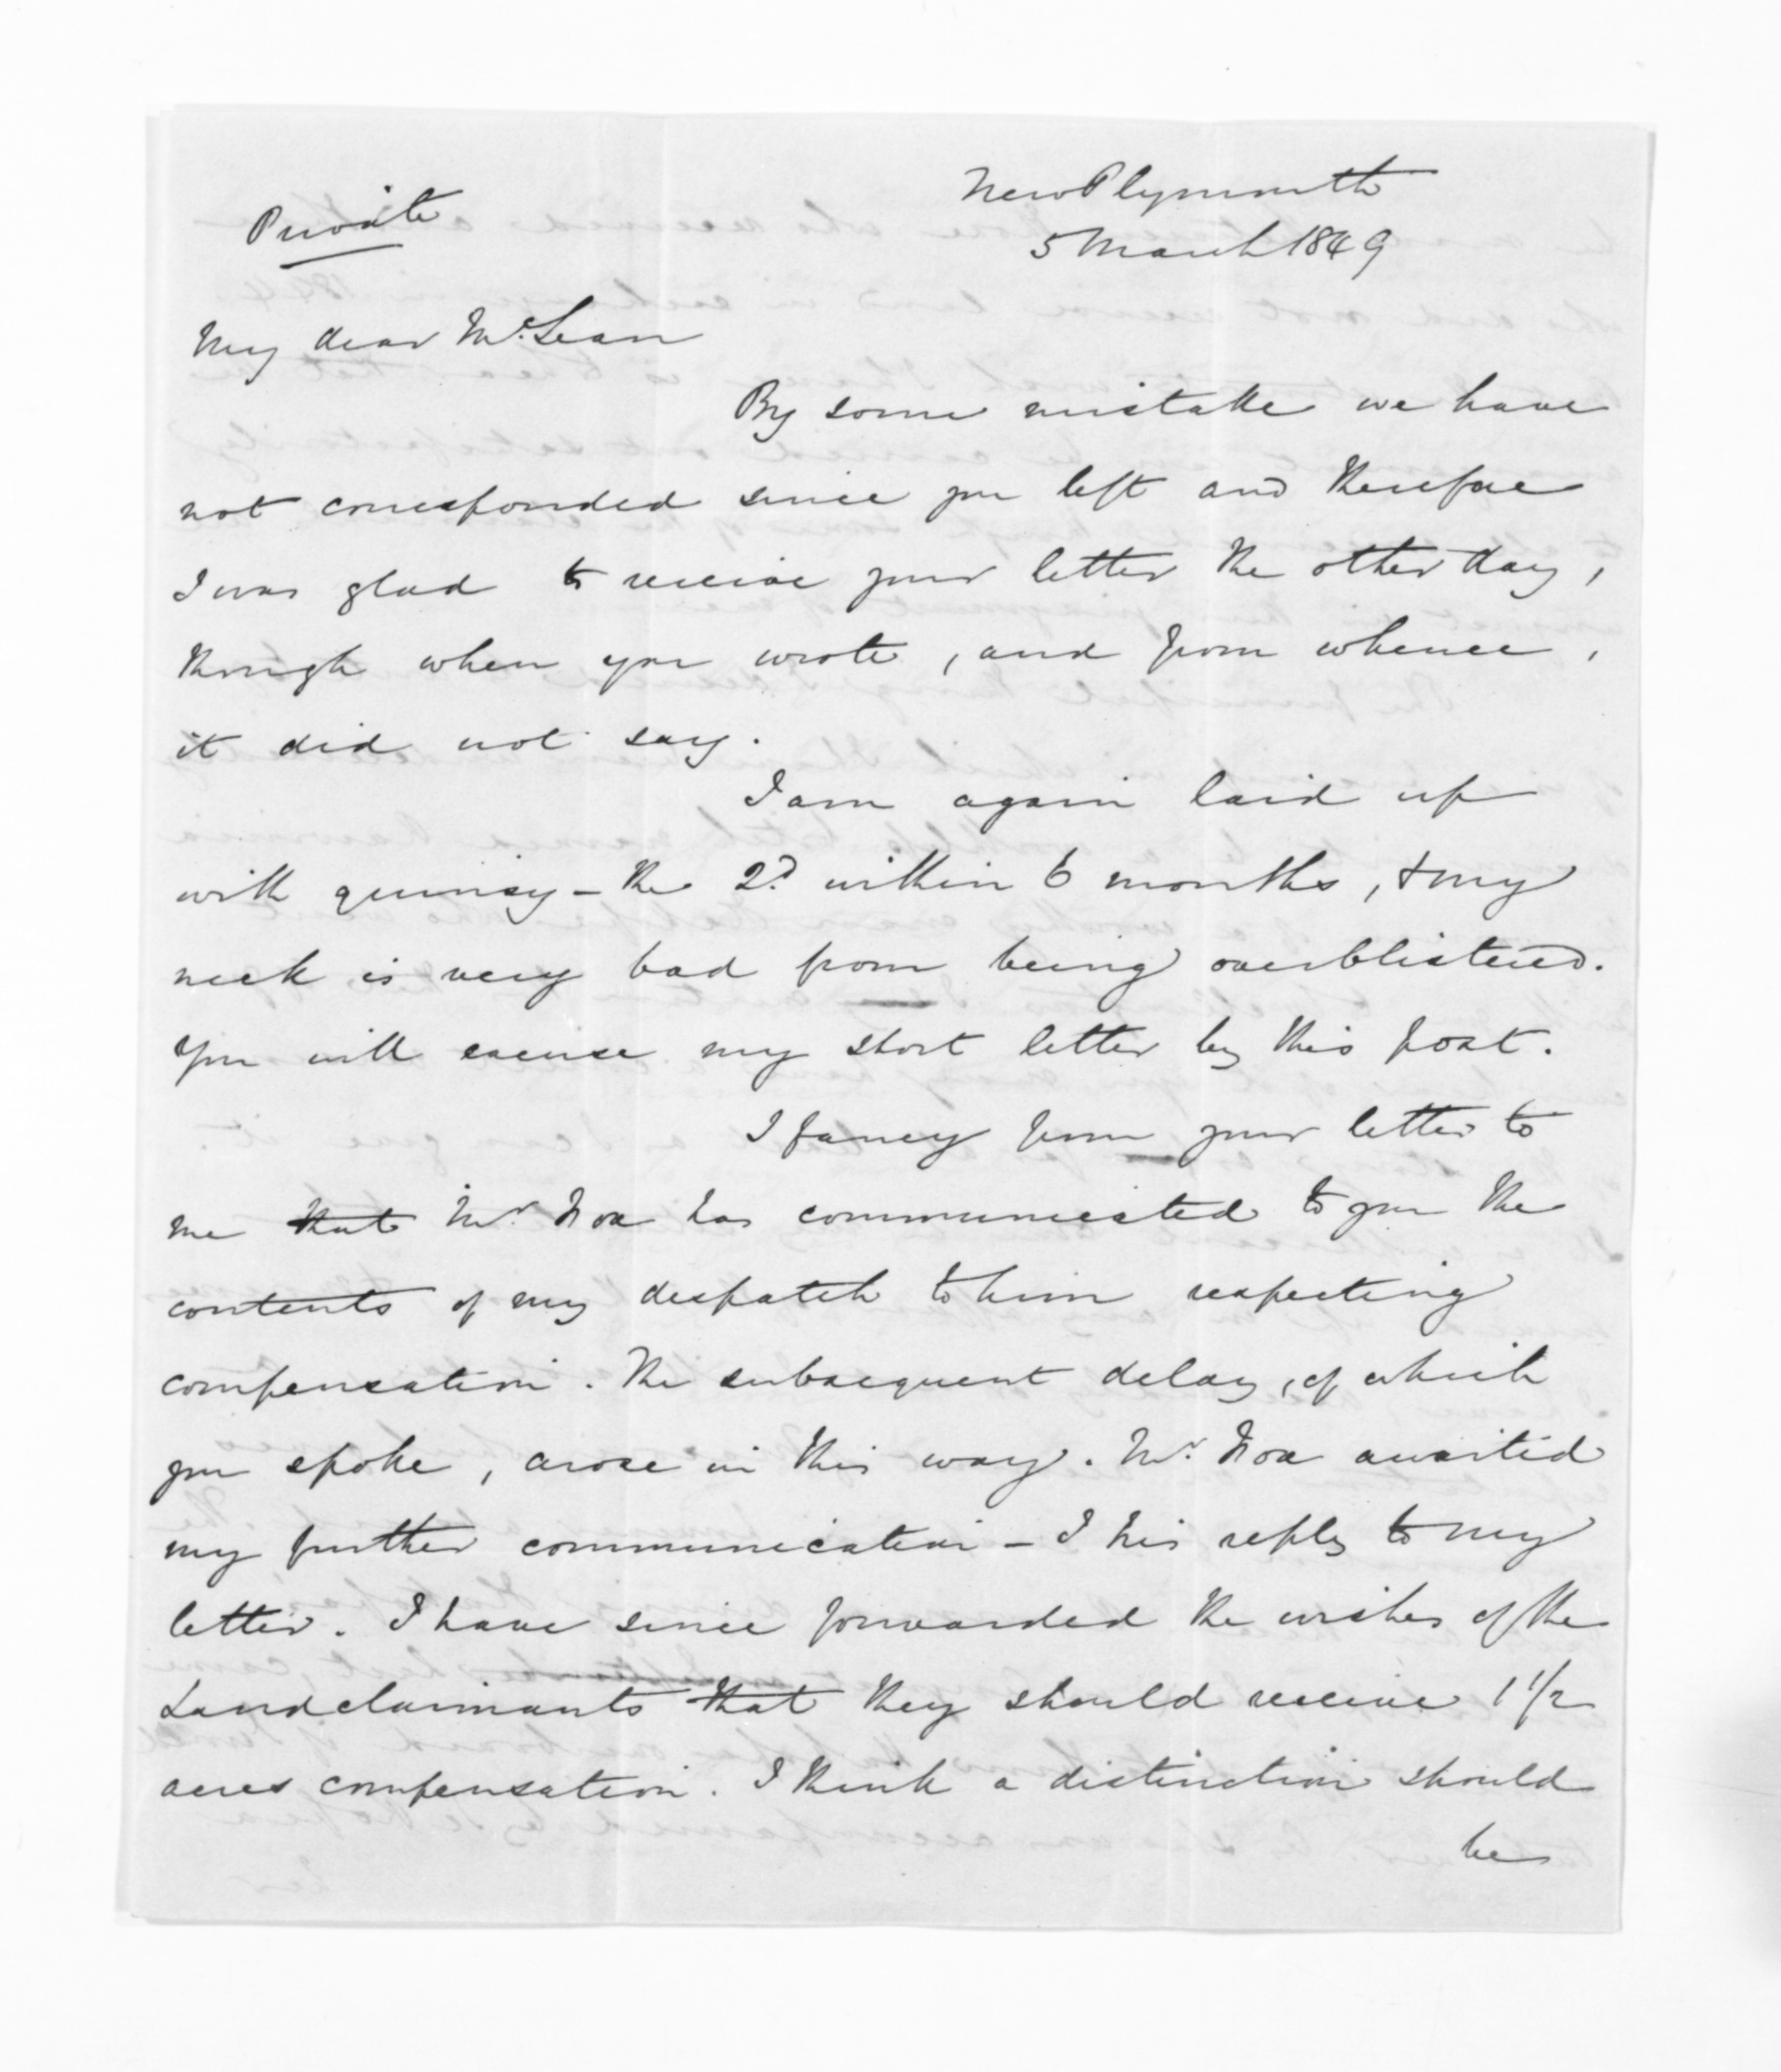 Private
New Plymouth
5 March 1849
My dear McLean
By some mistake we have
not corresponded since you left and therefore
I was glad to receive your letter the other day,
though when you wrote, and from whence,
it did not say.
I am again laid up
with quinsy - the 2d within 6 months, & my
neck is very bad from being overblistered.
You will excuse my short letter by this post.
I fancy from your letter to
me that Mr. Fox has communicated to you the
contents of my despatch to him respecting
compensation. The subsequent delay, of which
you spoke, arose in this way. Mr. Fox awaited
my further communication - I his reply to my
letter. I have since forwarded the wishes of the
Landclaimants that they should receive 1 1/2
acres compensation. I think a distinction should
be